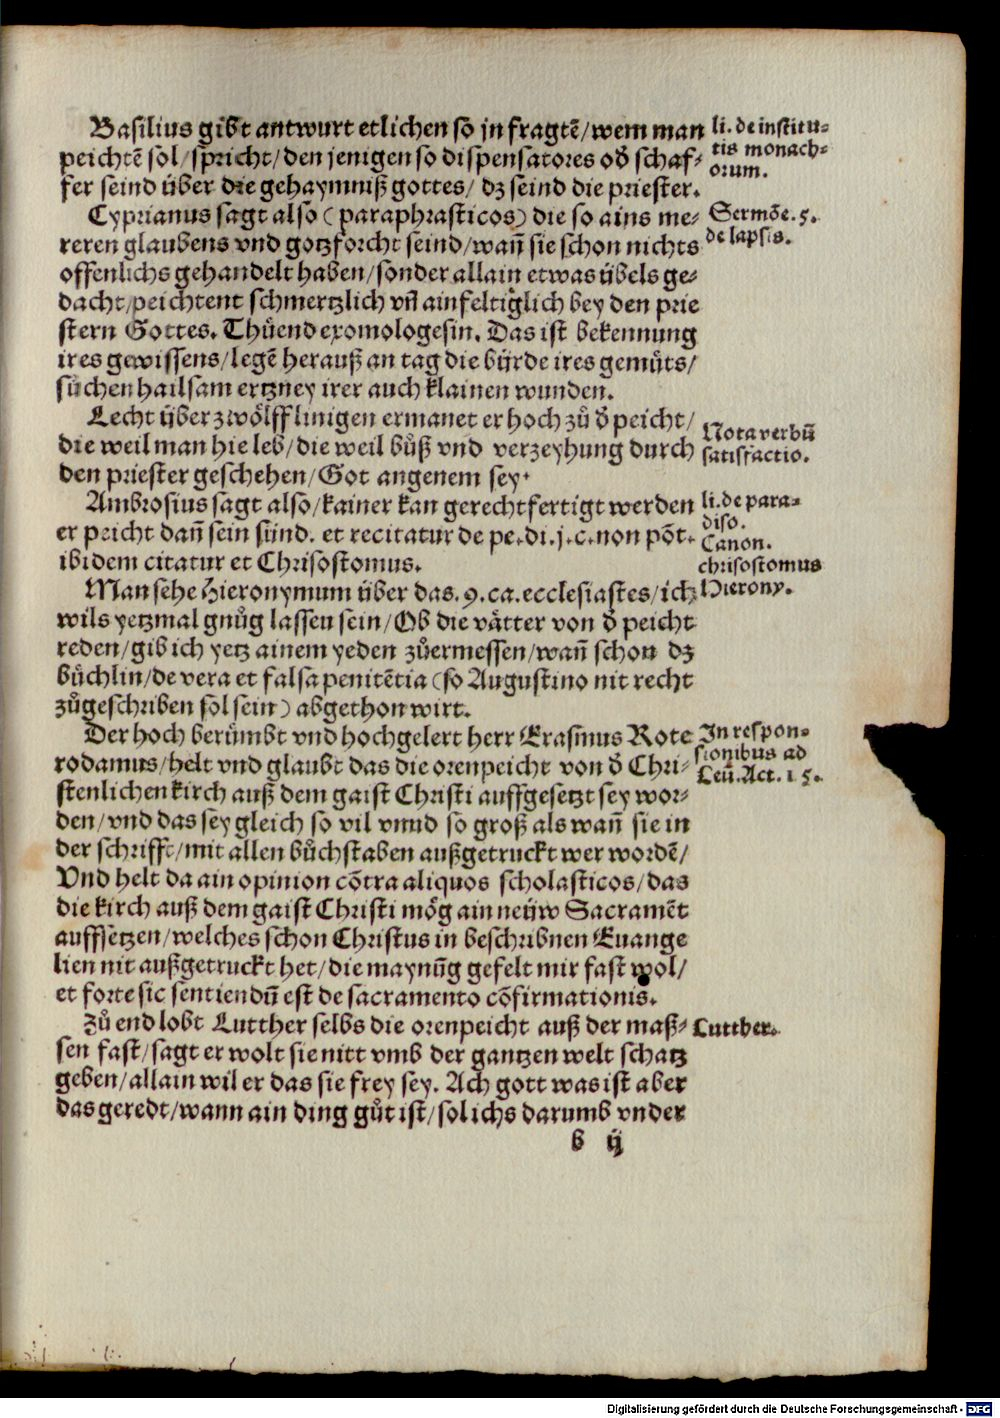 Basilius gibt antwurt etlichen so jn fragtē/wem man
peichtē sol/spricht/den jenigen so dispensatores od̕ schaf-
fer seind über die gehaymniß gottes/ dz seind die priester.
Cyprianus sagt also (paraphrasticos) die so ains me-
reren glaubens vnd gotzforcht seind/wañ sie schon nichts
offenlichs gehandelt haben/sonder allain etwas übels ge-
dacht/peichtent schmertzlich vñ ainfeltiglich bey den prie
stern Gottes. Thůend exomologesin. Das ist bekennung
ires gewissens/legē herauß an tag die bürde ires gemüts/
sůchen hailsam ertzney irer auch klainen wunden.
Lecht über zwölff linigen ermanet er hoch zů d̕ peicht/
die weil man hie leb/die weil bůß vnd verzeyhung durch
den priester geschehen/Got angenem sey.
Ambrosius sagt also/kainer kan gerechtfertigt werden
er peicht dañ sein sünd. et recitatur de pe.di.j.c.non pōt.
ibidem citatur et Chrisostomus.
Man sehe Hieronymum über das.9.ca.ecclesiastes/ich
wils yetzmal gnůg lassen sein/Ob die vätter von d̕ peicht
reden/gib ich yetz ainem yeden zůermessen/wañ schon dz
bůchlin/de vera et falsa penitētia (so Augustino nit recht
zůgeschriben sol sein) abgethon wirt.
Der hoch berümbt vnd hochgelert herr Erasmus Rote
rodamus/helt vnd glaubt das die orenpeicht von d̕ Chri-
stenlichen kirch auß dem gaist Christi auffgesetzt sey wor-
den/vnd das sey gleich so vil vnnd so groß als wañ sie in
der schrifft/mit allen bůchstaben außgetruckt wer wordē/
Vnd helt da ain opinion cōtra aliquos scholasticos/das
die kirch auß dem gaist Christi mög ain neüw Sacramēt
auffsetzen/welches schon Christus in beschribnen Euange
lien nit außgetruckt het/die maynūg gefelt mir fast wol/
et forte sic sentiendū est de sacramento cōfirmationis.
Zů end lobt Lutther selbs die orenpeicht auß der maß-
sen fast/sagt er wolt sie nitt vmb der gantzen welt schatz
geben/allain wil er das sie frey sey. Ach gott was ist aber
das geredt/wann ain ding gůt ist/sol ichs darumb vnder
b ij
li. de institu-
tis monach-
orum.
Sermōe.5.
de lapsis.
Nota verbū
satisfactio.
li.de para-
diso.
Canon.
chrisostomus
Hierony.
In respon-
sionibus ad
Leū.Act.15.
Lutther.
Digitalisierung gefördert durch die Deutsche Forschungsgemeinschaft - DFG